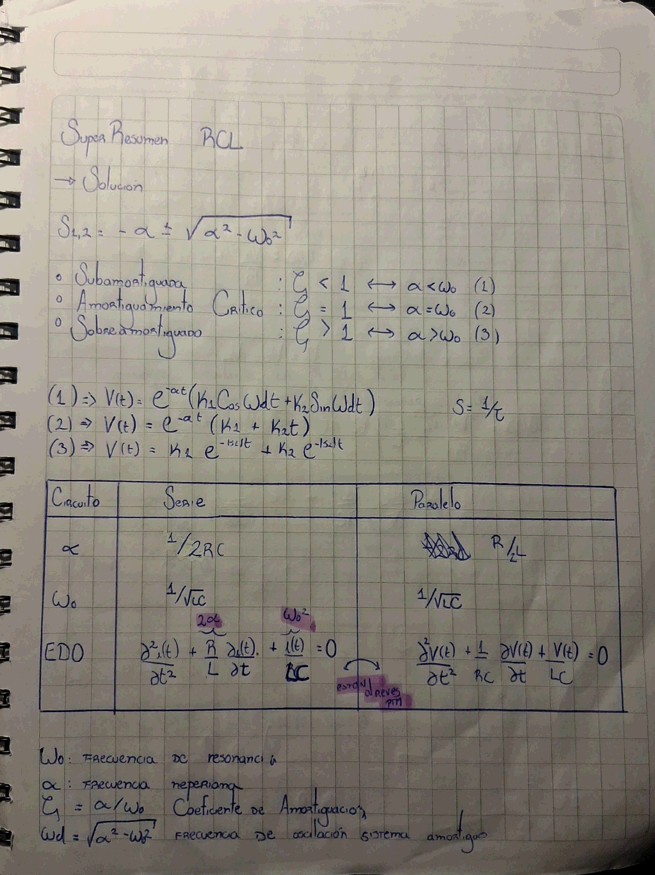 Super Resumen RCL
→ Solución
S1,2 = - α ± √(α² - ω₀²)
° Subamortiguada : ζ < 1 ↔ α < ω₀ (1)
° Amortiguamiento Crítico : ζ = 1 ↔ α = ω₀ (2)
° Sobreamortiguado : ζ > 1 ↔ α > ω₀ (3)
(1) => V(t) = e^-αt (K1 Cos Wdt + K2 Sin Wdt) S = 1/τ
(2) => V(t) = e^-αt (K1 + K2t)
(3) => V(t) = K1 e^-|s1|t + K2 e^-|s2|t
Circuito Serie Paralelo
α 1/2RC R/2L
ω₀ 1/√LC 1/√LC
2α ω₀²
EDO ∂²i(t)/∂t² + R/L ∂i(t)/∂t + i(t)/LC = 0 ∂²V(t)/∂t² + 1/RC ∂V(t)/∂t + V(t)/LC = 0
están al reves
ω₀: FRECUENCIA DE resonancia
α: FRECUENCIA neperiana
ζ = α/ω₀ Coeficiente de Amortiguación
ωd = √(α² - ω₀²) FRECUENCIA DE oscilación sistema amortiguo